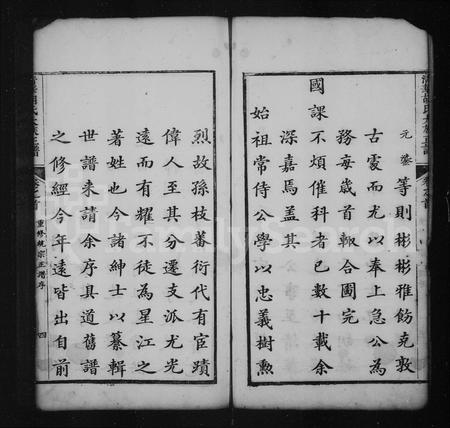 元鏊等則彬彬雅飭克敦
古處而尤以奉上急公為
務每歲首輒合圑完
國課不煩催科者已數十載余
深嘉焉蓋其
始祖常侍公學以忠義樹勲
烈故孫枝蕃衍代有宦蹟
偉人至其分遷支派尤光
遠而有耀不徒為星江之
著姓也今諸紳士以纂輯
世譜来請余序具道舊譜
之修經今年遠皆出自前
重修統宗正譜序
四
FamilySearch